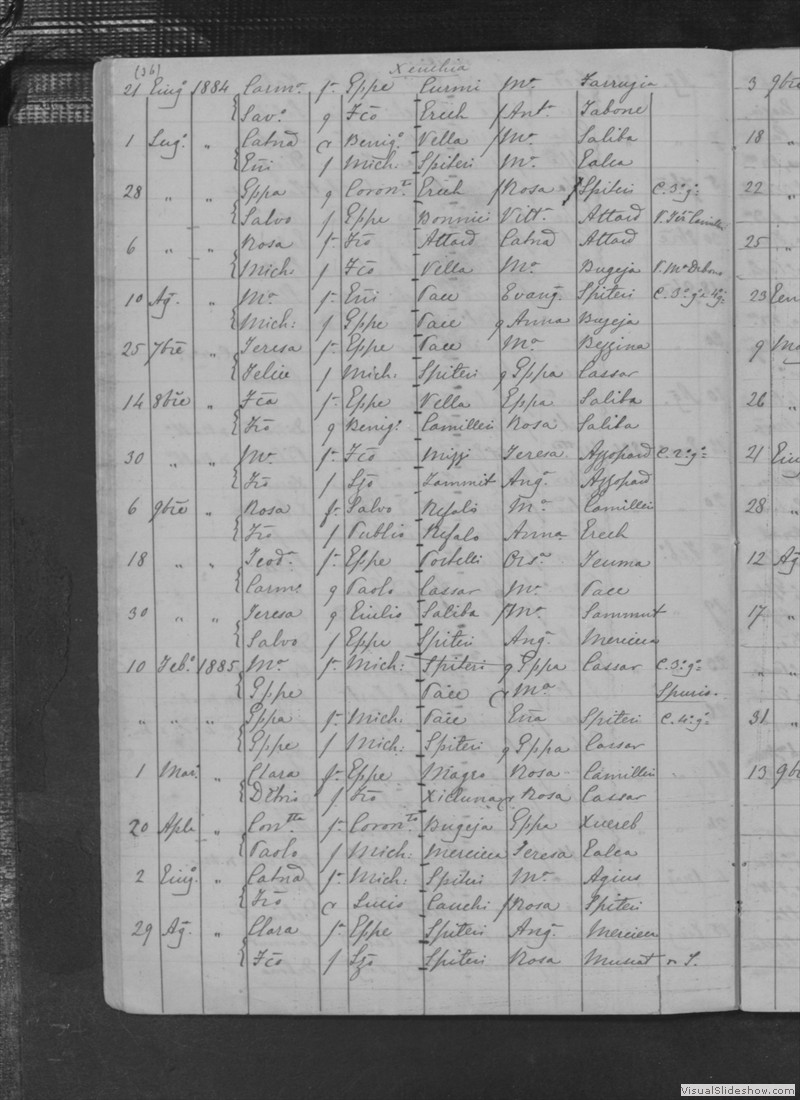 (36) Xeuchia
21 Giug.o 1884 Carm.a f. Gppe Curmi M.a Farrugia 3 9bre
Sav.o q Fco Grech f Ant.a Tabone
1 Lug.o " Catna a Benig.o Vella f M.a Saliba 18 "
Gni f Mich. Spiteri M.a Galea
28 " " Gppa q Coron.to Grech f Rosa f Spiteri C. 3.o g.o 22 "
Salvo f Gppe Bonnici Vitt.a Attard
6 " " Rosa f. Fco Attard Catna Attard 25 "
Mich. f Fco Vella M.a Bugeja V. M.a Debono
10 Ag. " M.a f. Gni Pace Evang. Spiteri C. 3.o g. 4 g. 23 Gen
Mich: f Gppe Pace q Anna Bugeja
25 7bre " Teresa f. Gppe Pace M.a Bezzina 9 Ma
Felice f Mich. Spiteri q Gppa Cassar
14 8bre " Fca f. Gppe Vella Gppa Saliba 26 "
Fco q Benig.o Camilleri Rosa Saliba
30 " " M.a f. Fco Mizzi Teresa Azzopard C. 2.o g.o 21 Giu
Fco f Lzo Zammit Ang. Azzopard
6 9bre " Rosa f. Salvo Refalo M.a Camilleri 28 "
Fco f Publio Refalo Anna Grech
18 " " Teod.a f. Gppe Portelli Ors.a Teuma 12 Ag
Carm. q Paolo Cassar M.a Pace
30 " " Teresa q Giulio Saliba f M.a Sammut 17 "
Salvo f Gppe Spiteri Ang. Mercieca
10 Feb.o 1885 M.a f. Mich: Spiteri q Gppa Cassar C. 3.o g.o " "
Gppe Pace a M.a Spurio.
" " " Gppa f. Mich. Pace Gna Spiteri C. 4.o g.o 31 "
Gppe f Mich: Spiteri q Gppa Cassar
1 Mar. " Clara f. Gppe Magro Rosa Camilleri 13 9br
f Fco Xicluna Rosa Cassar
20 Aple " Con.tta f. Coron.to Bugeja Gppa Xuereb
Paolo f Mich: Mercieca Teresa Galea
2 Giug. " Catna f. Mich: Spiteri M.a Agius
Fco a Lucio Cauchi f Rosa Spiteri
29 Ag. " Clara f. Gppe Spiteri Ang. Mercieca
Fco f Lzo Spiteri Rosa Muscat
VisualSlideshow.com